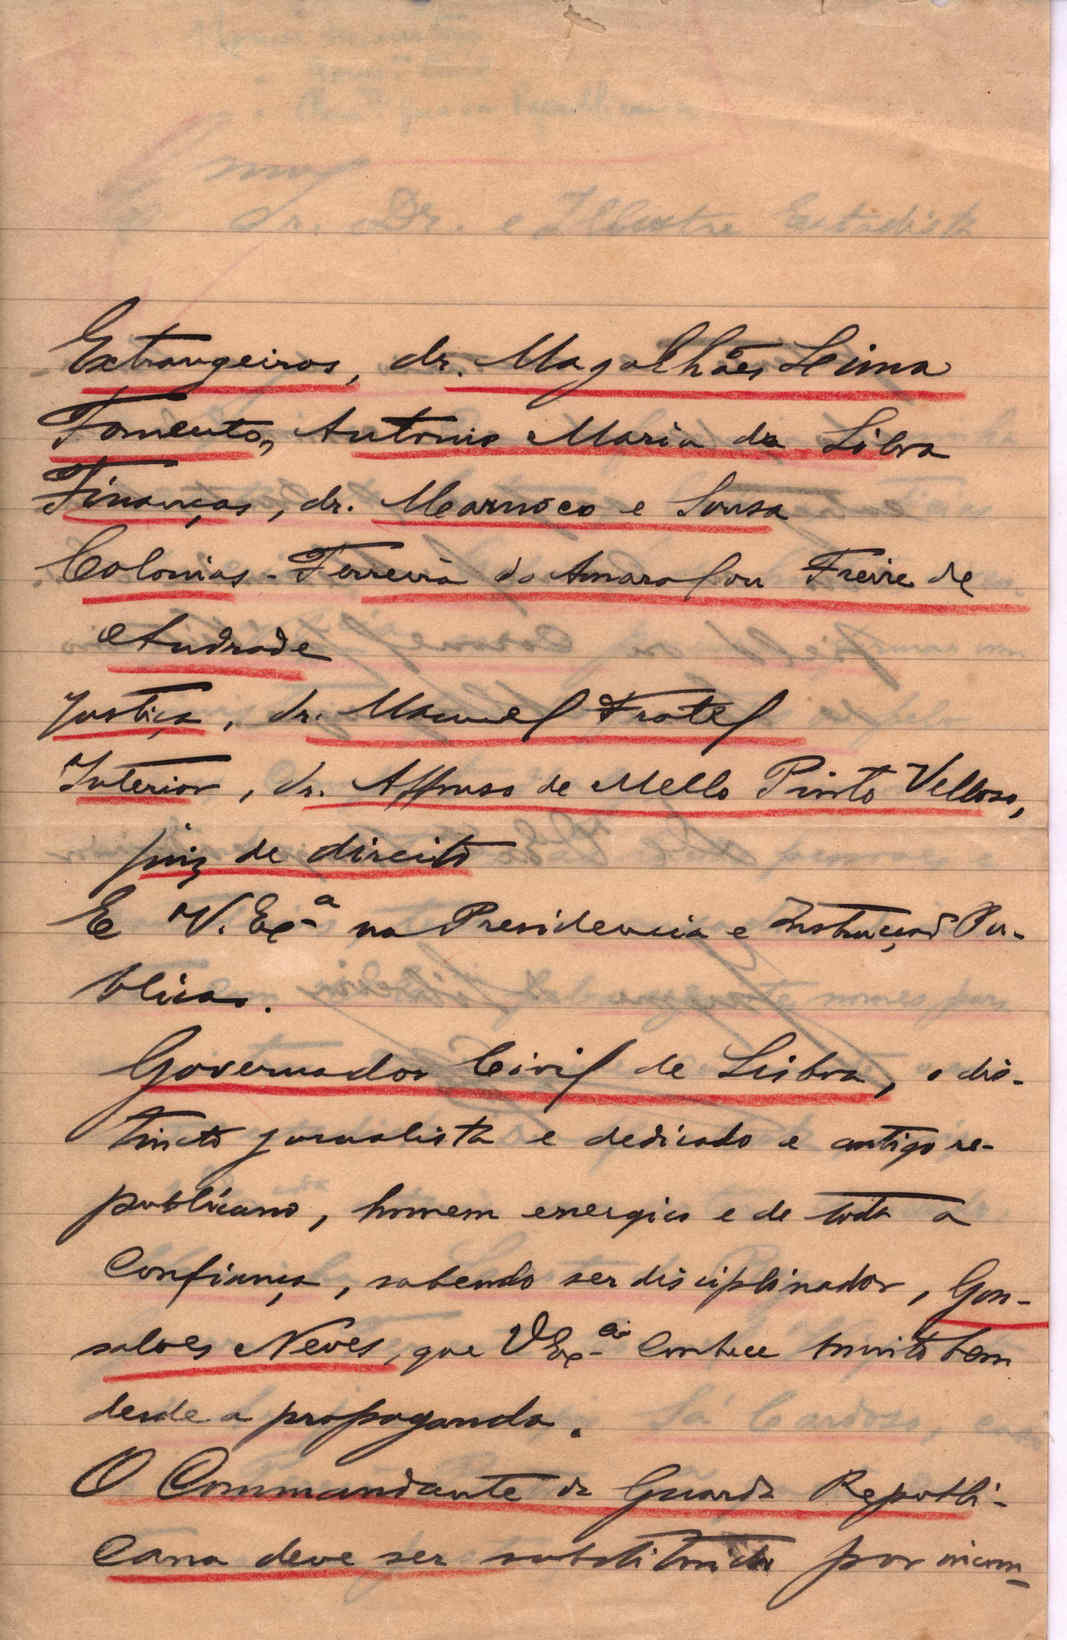 Extrangeiros, dr. Magalhães Lima
Fomento, Antonio Maria da Silva
Finanças, dr. Marnoco e Sousa
Colonias - Ferreira do Amaral ou Freire de
Andrade
Justiça, dr. Manuel Fratel
Interior, dr. Affonso de Mello Pinto Velloso,
juiz de direito
E V. Exª na Presidencia e Instrucção Pu-
blicas.
Governador Civil de Lisboa, o dis-
tincto jornalista e dedicado e antigo re-
publicano, homem energico e de toda a
confiança, sabendo ser disciplinador, Gon-
salves Neves, que V Exª conhece muito bem
desde a propaganda.
O Commandante da Guarda Republi-
cana deve ser substituido por